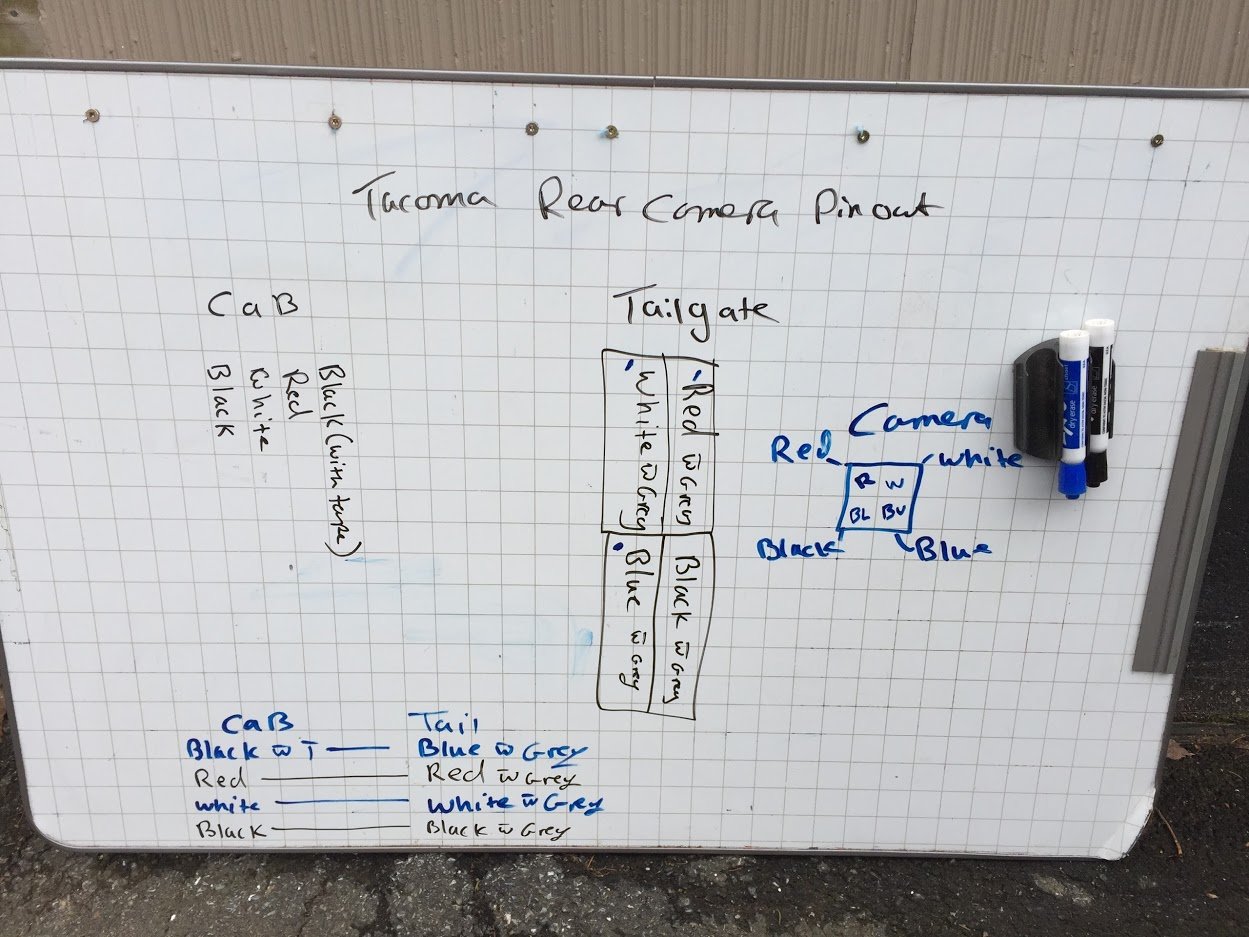 Tacoma Rear Camera Pinout
CaB
Black
White
Red
Black (with tape)
Tailgate
White w̄ Grey
Red w̄ Grey
Blue w̄ Grey
Black w̄ Grey
Camera
Red
White
R W
BL BU
Black
Blue
CaB Tail
Black w̄ T Blue w̄ Grey
Red Red w̄ Grey
White White w̄ Grey
Black Black w̄ Grey
dry erase
dry erase